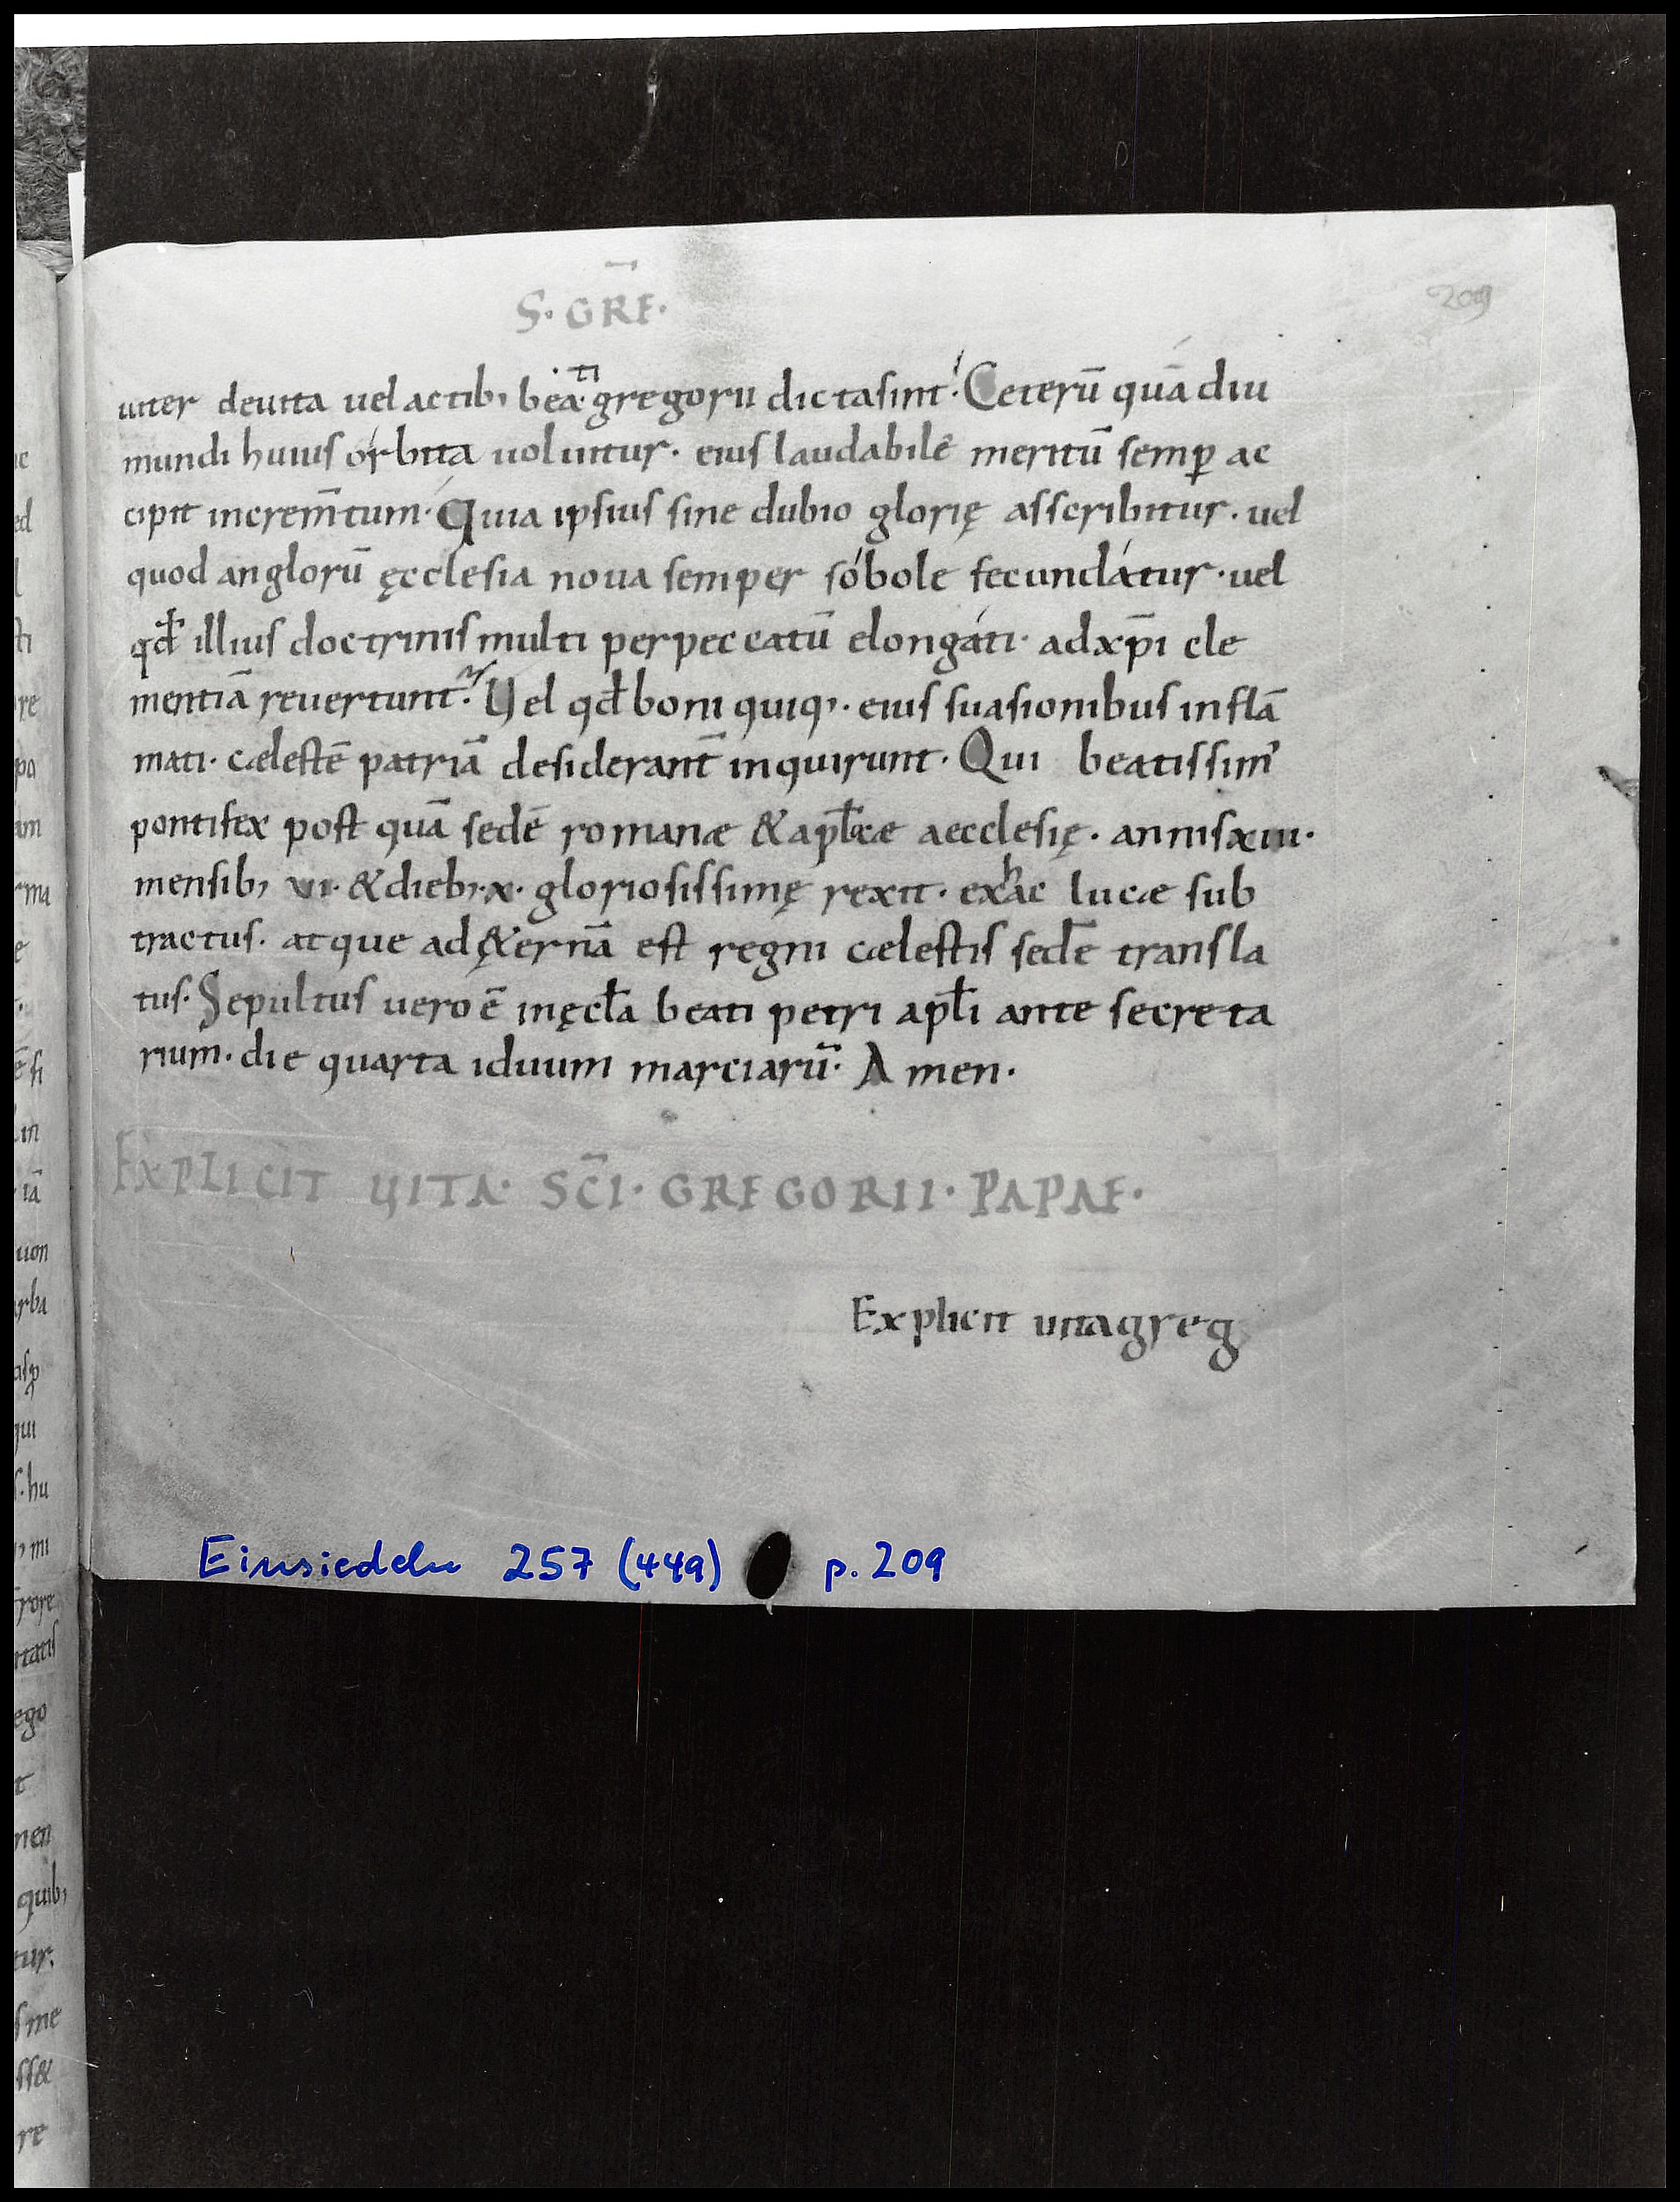 S. GR̄E.
209
uiter deuita uel actib; bea·ti· gregorii dicta sint. Ceterū quādiu
mundi huius órbita uoluitur· eius laudabilē meritū semꝑ ac
cipit increm̄tum· Quia ipsius sine dubio glorię asscribitur· uel
quod anglorū ęcclesia noua semper sóbole fecundátur· uel
qđ illius doctrinis multi per peccatū elongáti· ad xp̄i cle
mentiā reuertunt᷑. Vel qđ boni quiq;· eius suasionibus inflā
mati· cælestē patriā desiderant̄ inquirunt· Qui beatissim'
pontifex post quā sedē romanæ & apl̄icæ aecclesię· annis xiii·
mensib; vi· & dieb;· x· gloriosissimę rexit· ex hac lucæ sub
tractus· atque ad ę&ernā est regni cælestis sedē transla
tus· Sepultus uero ē in ęcl̄a beati petri apl̄i ante secreta
rium· die quarta iduum marciarū· Amen·
EXPLICIT VITA· SC̄I· GREGORII· PAPAE·
Explicit uita greg
Einsiedeln 257 (449) p. 209